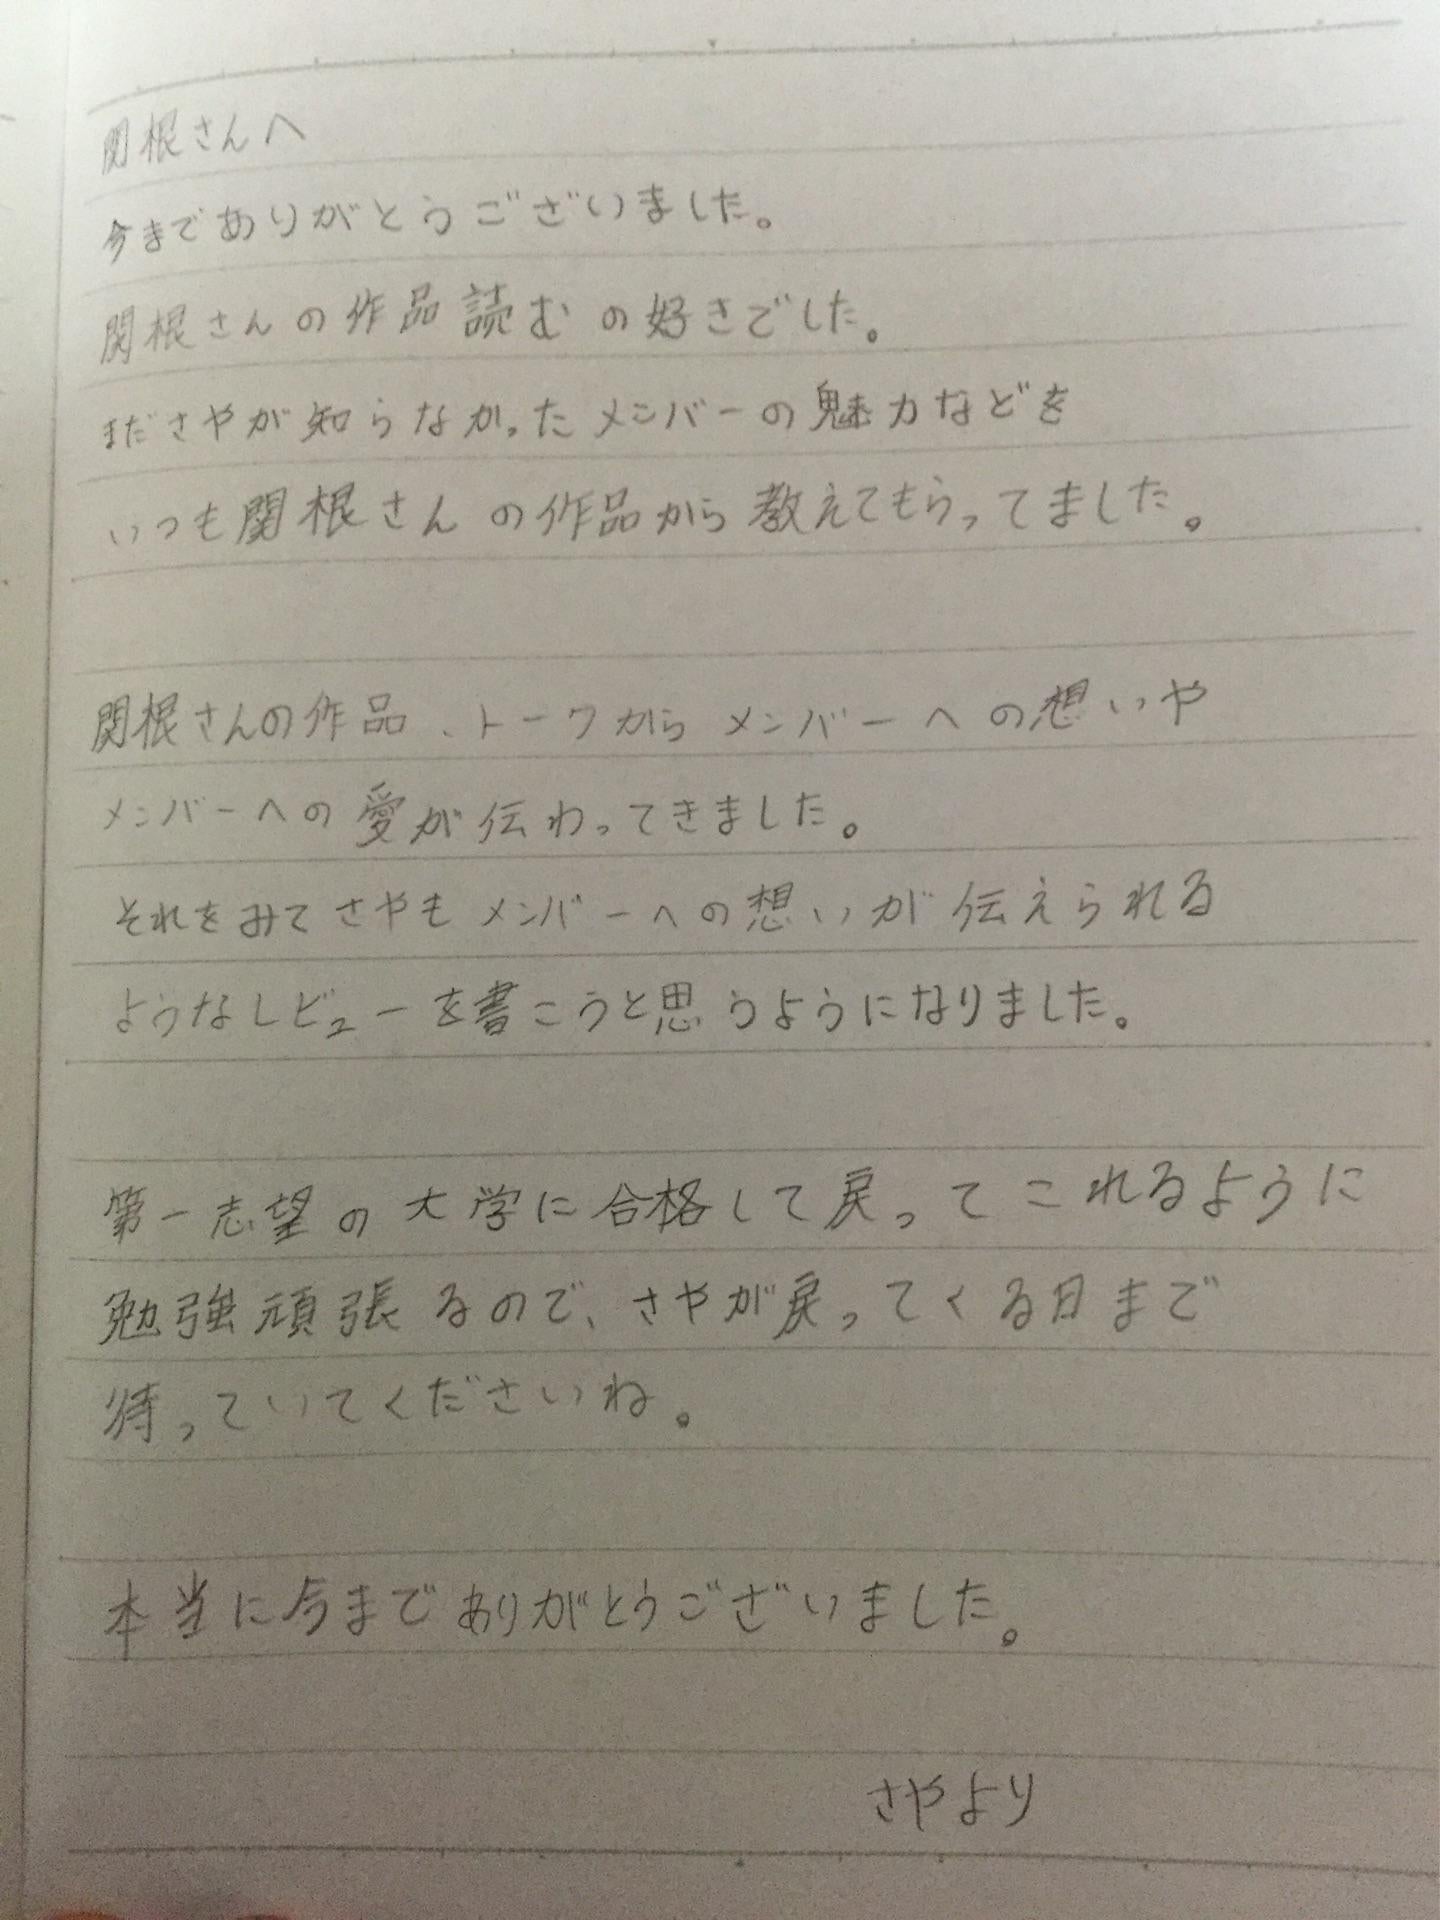 関根さんへ
今までありがとうございました。
関根さんの作品読むの好きでした。
まださやが知らなかったメンバーの魅力などを
いつも関根さんの作品から教えてもらってました。
関根さんの作品、トークからメンバーへの想いや
メンバーへの愛が伝わってきました。
それをみてさやもメンバーへの想いが伝えられる
ようなレビューを書こうと思うようになりました。
第一志望の大学に合格して戻ってこれるように
勉強頑張るので、さやが戻ってくる日まで
待っていてくださいね。
本当に今までありがとうございました。
さやより